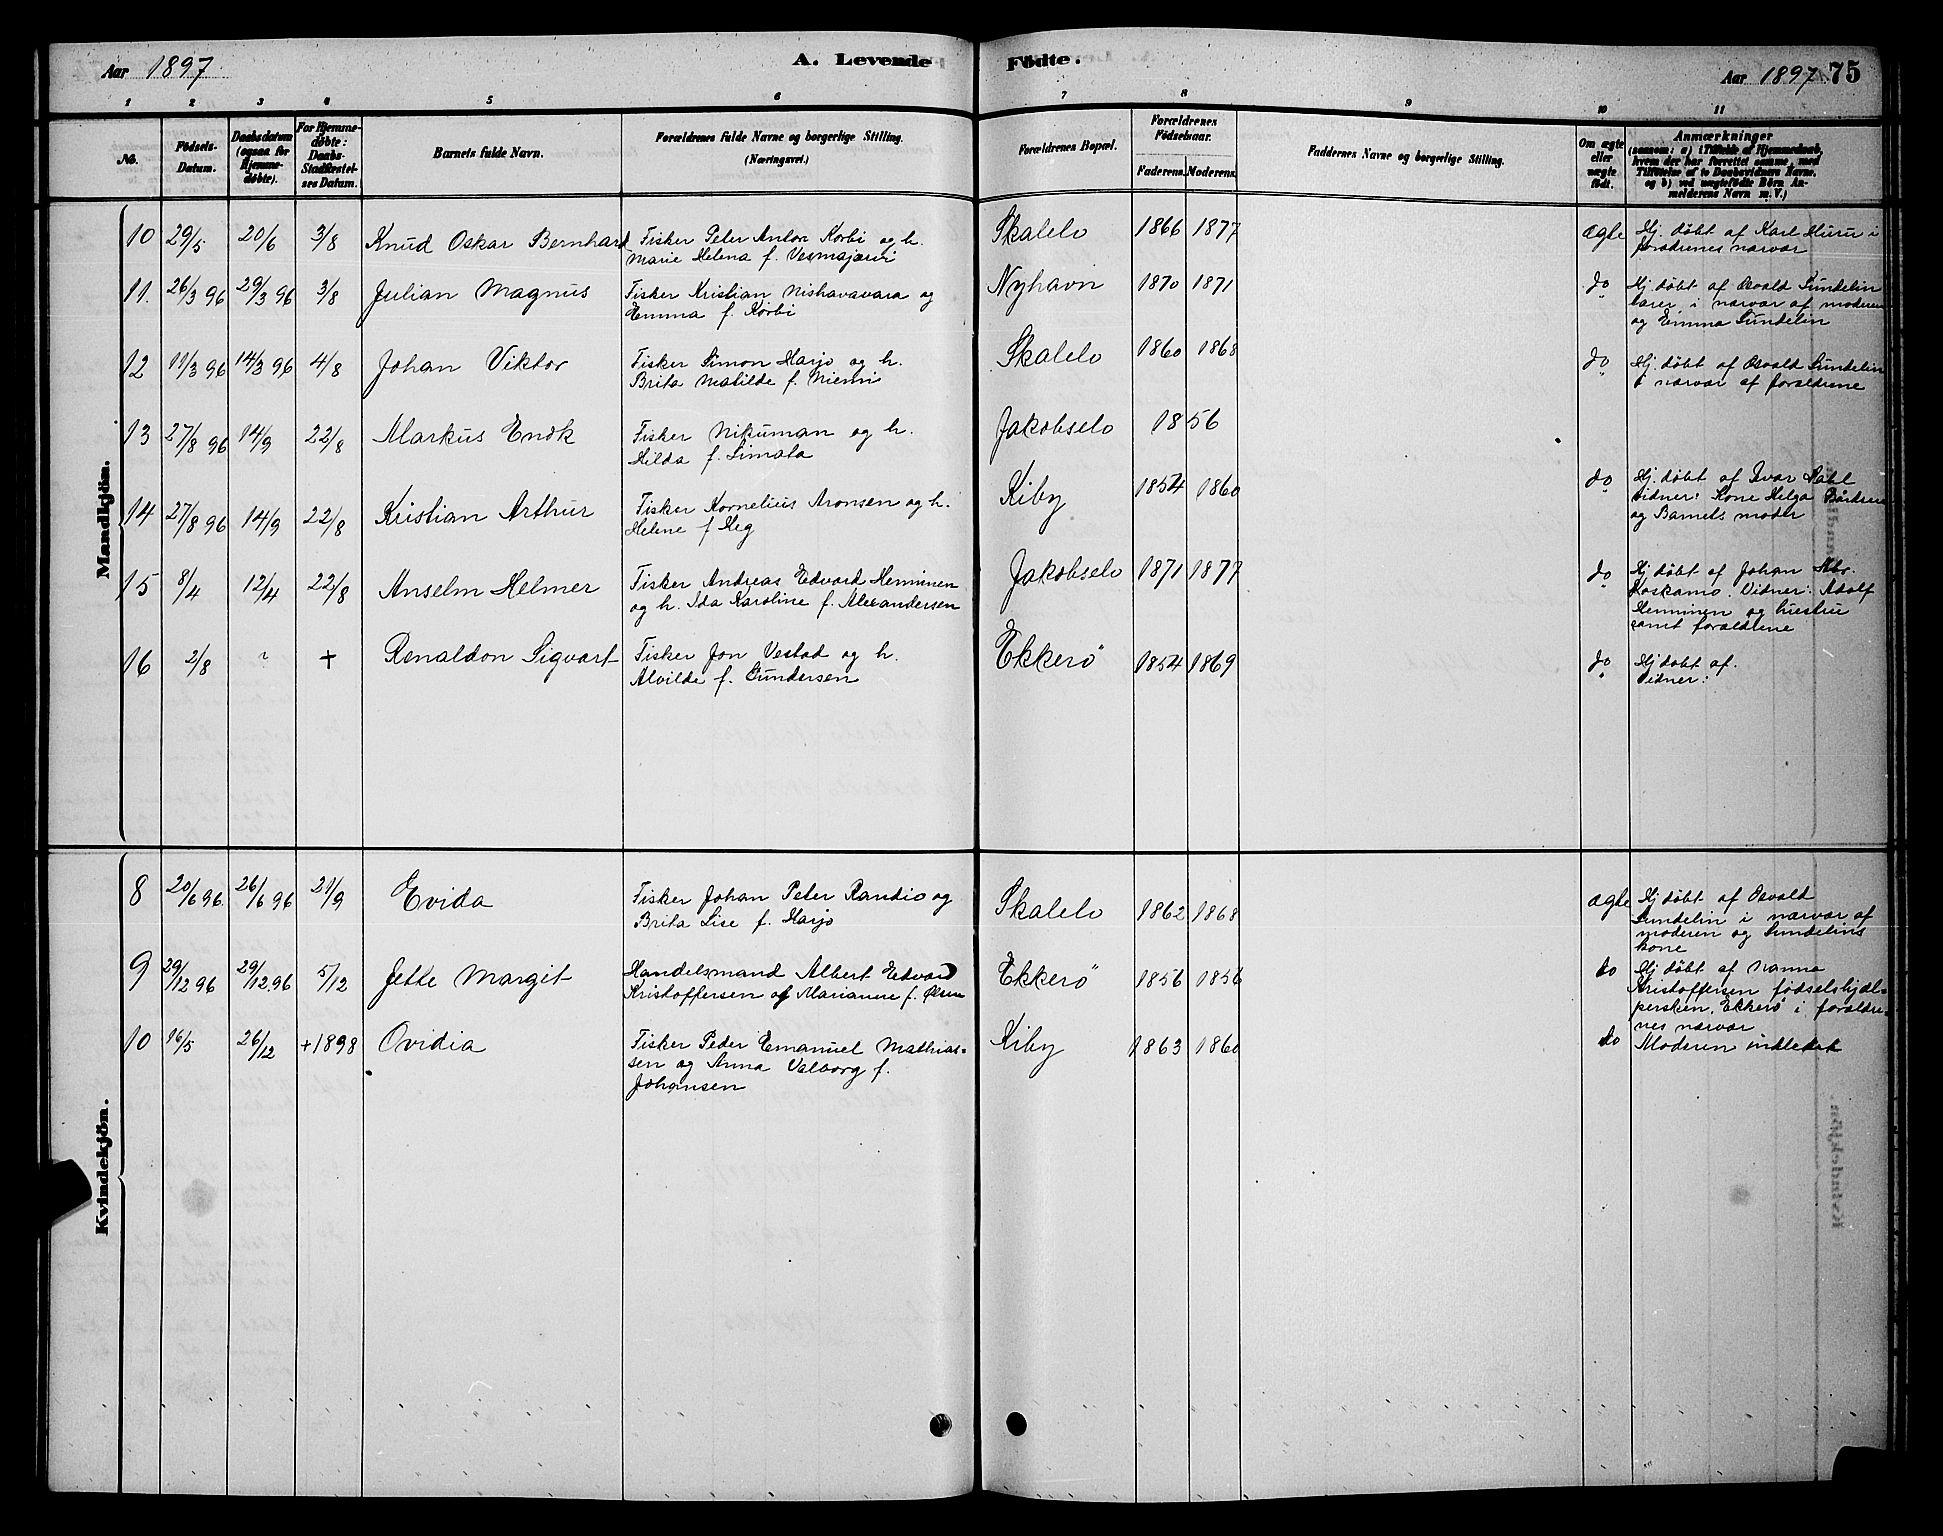 Aar 1897
A. Levende
Mandkjön.
Kvindekjön.
1
2
3
4
5
6
No.
Födsels-
Datum.
Daabsdatum
(ogsaa for
Hjemme-
döbte).
For Hjemme-
döbte:
Daabs-
Stadfæstel-
ses Datum.
Barnets fulde Navn.
Forældrenes fulde Navne og borgerlige Stilling.
(Næringsvei.)
10 29/5 20/6 3/8 Knud Oskar Bernhard Fisker Peter Anton Korbi og h.
Marie Helena f. Vesmajärvi
11. 26/3 96 29/3 96 3/8 Julian Magnus Fisker Kristian Nishavavara og
Emma f. Korbi
12 11/3 96 14/3 96 4/8 Johan Viktor Fisker Simon Harjo og h.
Brita Matilde f. Niemi
13 27/8 96 14/9 22/8 Markus Endk Fisker Nikuman og h.
Hilda f. Simala
14 27/8 96 14/9 22/8 Kristian Arthur Fisker Kornelius Aronsen og h.
Helene f. Heg
15 8/4 12/4 22/8 Anselm Helmer Fisker Andreas Edvard Henninen
og h. Ida Karoline f. Alexandersen
16 2/8 + Renaldon Sigvart Fisker Jon Vestad og h.
Alvilde f. Gundersen
8 20/6 96. 26/6 96 21/9 Evida Fisker Johan Peter Randio og
Brita Lise f. Harjo
9 29/12 96 29/12.96 5/12 Jette Margit Handelsmand Albert Edvard
Kristoffersen og Marianne f. Olsen
10 16/5 26/12 +1898 Ovidia Fisker Peder Emanuel Mathias-
sen og Anna Valborg f.
Johansen
Födte.
Aar 1897 75
7
8
9
10
11
Forældrenes Bopæl.
Forældrenes
Födselsaar.
Faderens. Moderens.
Faddernes Navne og borgerlige Stilling.
Om ægte
eller
uægte
födt.
Anmærkninger
(saasom: a) i Tilfælde af Hjemmedaab,
hvem der har forrettet samme, med
Tilföielse af to Daabsvidners Navne,
og b) ved uægtefödte Börn An-
melderens Navn m. V.)
Skalelv 1866 1877 ægte Hj. døbt af Karl Huru i
forældrenes nærvær
Nyhavn 1870 1871 do Hj. døbt af Osvald Sundelin
lærer i nærvær af moderen
og Emma Sundelin
Skalelv 1860 1868 do Hj. døbt af Osvald Sundelin
i nærvær af forældrene
Jakobselv 1856
Kiby 1854 1860 do Hj. døbt af Ivar Dahl
Vidner: Kone Helga Bårdsen
og Barnets moder
Jakobselv 1871 1877 do Hj. døbt af Johan Abr.
Koskamo. Vidner: Adolf
Henninen og hustru
samt forældrene
Ekkerö 1854 1869 do Hj døbt af.
Vidner:
Skalelv 1862 1868 ægte Hj døbt af Osvald
Sundelin i nærvær af
moderen og Sundelins
kone
Ekkerö 1856 1856 do Hj døbt af Nanna
Kristoffersen fødselshjæl-
persken, Ekkerö i forældre-
nes nærvær
Kiby 1863 1860 do Moderen indledet